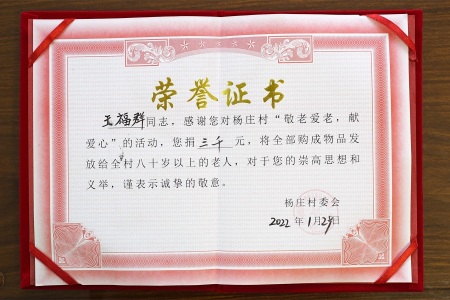 荣誉证书
王福群同志，感谢您对杨庄村“敬老爱老，献
爱心”的活动，您捐三千元，将全部购成物品发
放给全村八十岁以上的老人，对于您的崇高思想和
义举，谨表示诚挚的敬意。
杨庄村委会
2022年1月29日